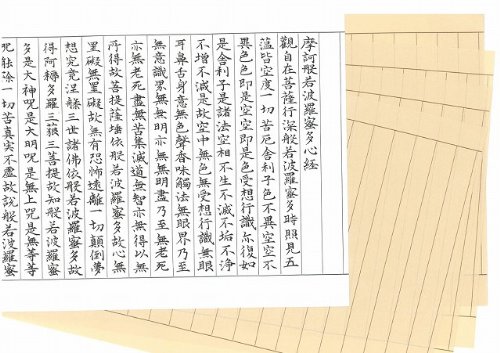 摩訶般若波羅蜜多心經
觀自在菩薩行深般若波羅蜜多時照見五
蘊皆空度一切苦厄舍利子色不異空空不
異色色即是空空即是色受想行識亦復如
是舍利子是諸法空相不生不滅不垢不淨
不增不減是故空中無色無受想行識無眼
耳鼻舌身意無色聲香味觸法無眼界乃至
無意識界無無明亦無無明盡乃至無老死
亦無老死盡無苦集滅道無智亦無得以無
所得故菩提薩埵依般若波羅蜜多故心無
罣礙無罣礙故無有恐怖遠離一切顛倒夢
想究竟涅槃三世諸佛依般若波羅蜜多故
得阿耨多羅三藐三菩提故知般若波羅蜜
多是大神呪是大明呪是無上呪是無等等
呪能除一切苦真實不虛故說般若波羅蜜